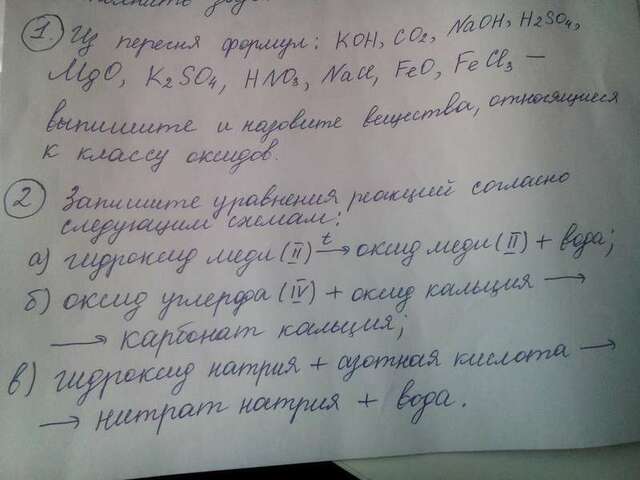 1. Из перечня формул: KOH, CO2, NaOH, H2SO4,
MgO, K2SO4, HNO3, NaCl, FeO, FeCl3 —
выпишите и назовите вещества, относящиеся
к классу оксидов.
2 Запишите уравнения реакций согласно
следующим схемам:
а) гидроксид меди (II) t→ оксид меди (II) + вода;
б) оксид углерода (IV) + оксид кальция →
→ карбонат кальция;
в) гидроксид натрия + азотная кислота →
→ нитрат натрия + вода.